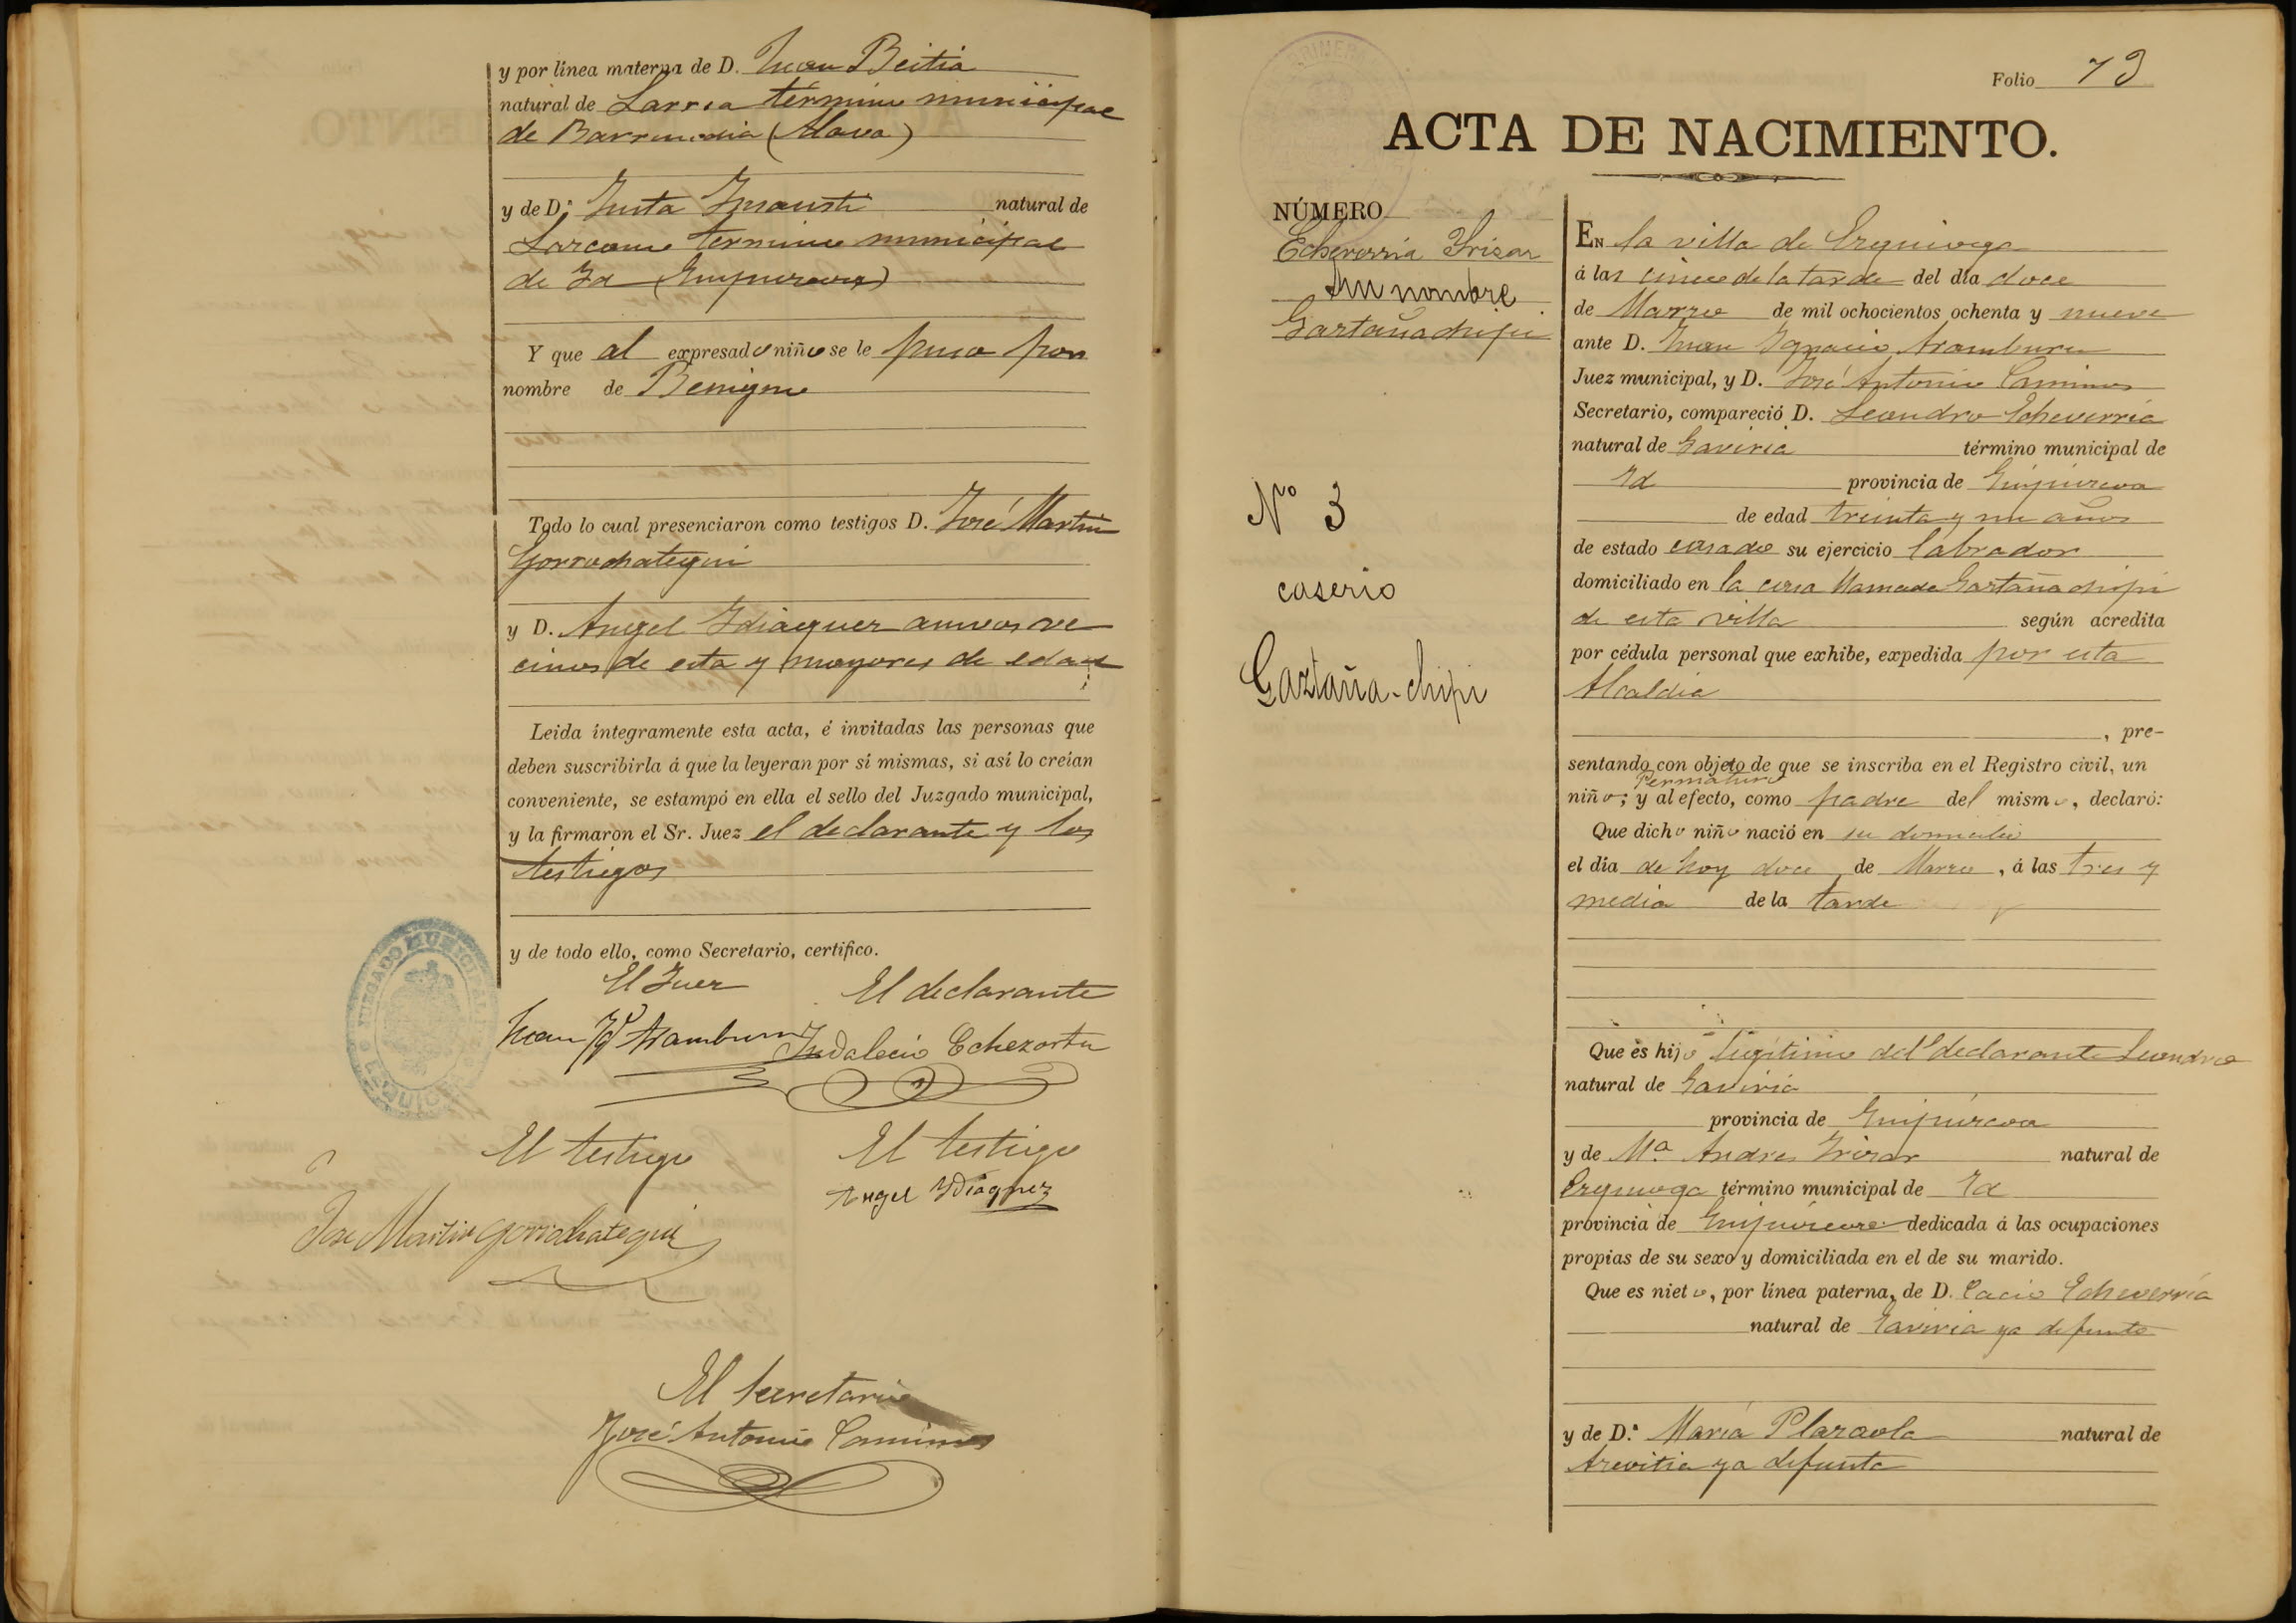 y por línea materna de D. Juan Beitia
natural de Larrea término municipal
de Barrundia (Alava)
y de D.ª Justa Ynausti natural de
Lazcano termino municipal
de Id (Guipuzcoa)
Y que al expresado niño se le puso por
nombre de Benigno
Todo lo cual presenciaron como testigos D. José Martin
Gorrochategui
y D. Angel Ydiaquez ambos ve
cinos de esta y mayores de edad
Leida íntegramente esta acta, é invitadas las personas que
deben suscribirla á que la leyeran por sí mismas, si así lo creían
conveniente, se estampó en ella el sello del Juzgado municipal,
y la firmaron el Sr. Juez el declarante y los
testigos
y de todo ello, como Secretario, certifico.
El Juez El declarante
Juan Ygº Aramburu Indalecio Echezortu
JUZGADO MUNICIPAL
El testigo El testigo
Angel Ydiaquez
Jose Martin Gorrochategui
El Secretario
José Antonio Caminos
Folio 73
ACTA DE NACIMIENTO.
NÚMERO
Echeverria Yrizar
Sin nombre
Gaztañachipi
Nº 3
caserio
Gaztaña-chipi
EN la villa de Ezquioga
á las cinco de la tarde del día doce
de Marzo de mil ochocientos ochenta y nueve
ante D. Juan Ygnacio Aramburu
Juez municipal, y D. José Antonio Caminos
Secretario, compareció D. Leandro Echeverria
natural de Gaviria término municipal de
Id provincia de Guipúzcoa
de edad treinta y un años
de estado casado su ejercicio labrador
domiciliado en la casa llamada Gaztañachipi
de esta villa según acredita
por cédula personal que exhibe, expedida por esta
Alcaldia
, pre-
sentando con objeto de que se inscriba en el Registro civil, un
Permaturo
niño; y al efecto, como padre del mismo, declaró:
Que dicho niño nació en su domicilio
el día de hoy doce de Marzo, á las tres y
media de la tarde
Que es hijo legítimo del declarante Leandro
natural de Gaviria
provincia de Guipúzcoa
y de Mª Andres Yrizar natural de
Ezquioga término municipal de Id
provincia de Guipúzcoa dedicada á las ocupaciones
propias de su sexo y domiciliada en el de su marido.
Que es nieto, por línea paterna, de D. Cacio Echeverría
natural de Gaviria ya defunto
y de D.ª María Plazaola natural de
Azcoitia ya defunta